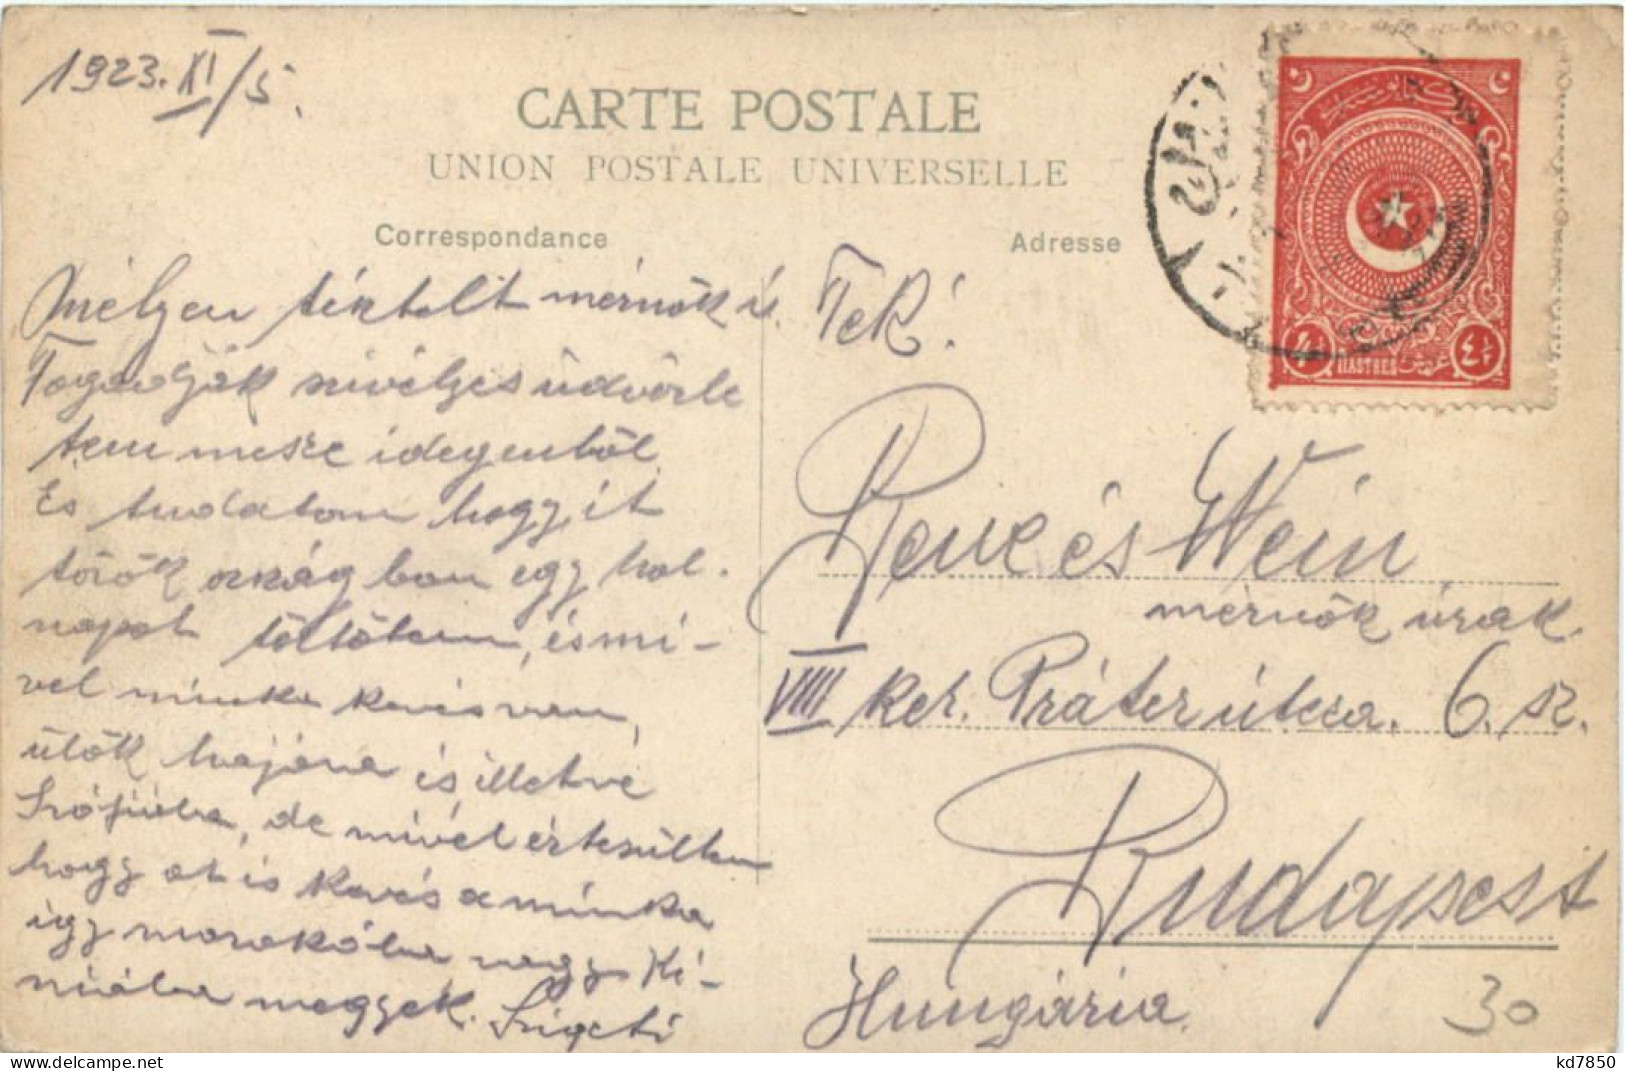 1923. XI/5.
CARTE POSTALE
UNION POSTALE UNIVERSELLE
Correspondance
Adresse
Mélyen tisztelt mérnök úr.
Fogadják szívélyes üdvözle
tem messze idegenből
És tudatom hogy it
török országban egy hol-
napot töltöttem, és mi-
vel munka kevés van,
ülök hajóra és illetve
Szófiába, de mivel értesültem
hogy ot is kevés a munka
így marokóba vagy Kí-
niába megyek. Szigeti
Tek!
Reue és Wein
mérnök úrak.
VIII ker. Práter útcza. 6. sz.
Budapest
Hungária
30
4½ PIASTRES غروش ٤½
kd7850